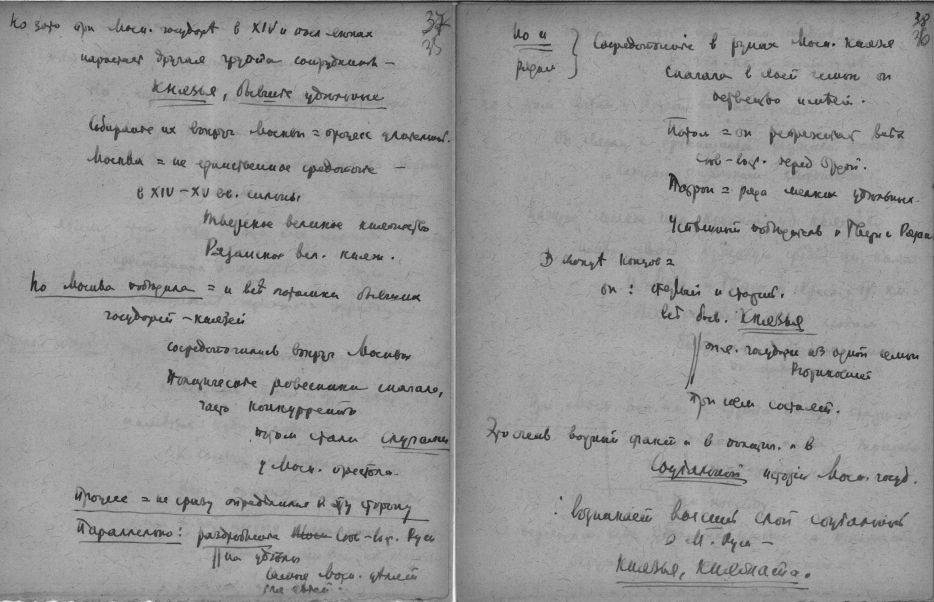 37
35
Но зато при Моск. государе в XIV и посл. веках
нарастает другая группа сотрудников —
Князья, бывшие удельные
Собирание их вокруг Москвы = процесс длительн.
Москва = не единственное средоточие —
в XIV–XV вв. сильны
Тверское великое княжество
Рязанское вел. княж.
Но Москва победила = и все потомки бывших
государей – князей
сосредоточились вокруг Москвы
Политические ровесники сначала,
часто конкуренты
потом стали слугами
у Моск. престола.
Процесс = не сразу определился в эту сторону
Параллельно: раздробилась Сев-вос. Русь
на уделы
самые Моск.
для детей.
38
36
Но и
рядом
Сосредоточие в руках Моск. князя
сначала в своей семье он
первенство имеет.
Потом = он репрезентат всей
Сев-вос. перед Ордой.
Патрон = ряда мелких удельных
Успешный победитель и Твери и Рязани
В конце концов =
он : старый и старш.
всё быв. князья
государи из одной семьи
Рюриковичей
при нём состоят.
Это очень важный факт и в политич. и в
социальной истории Моск. госуд.
: возникает высший слой социальный
в М. Руси —
князья, княжата.